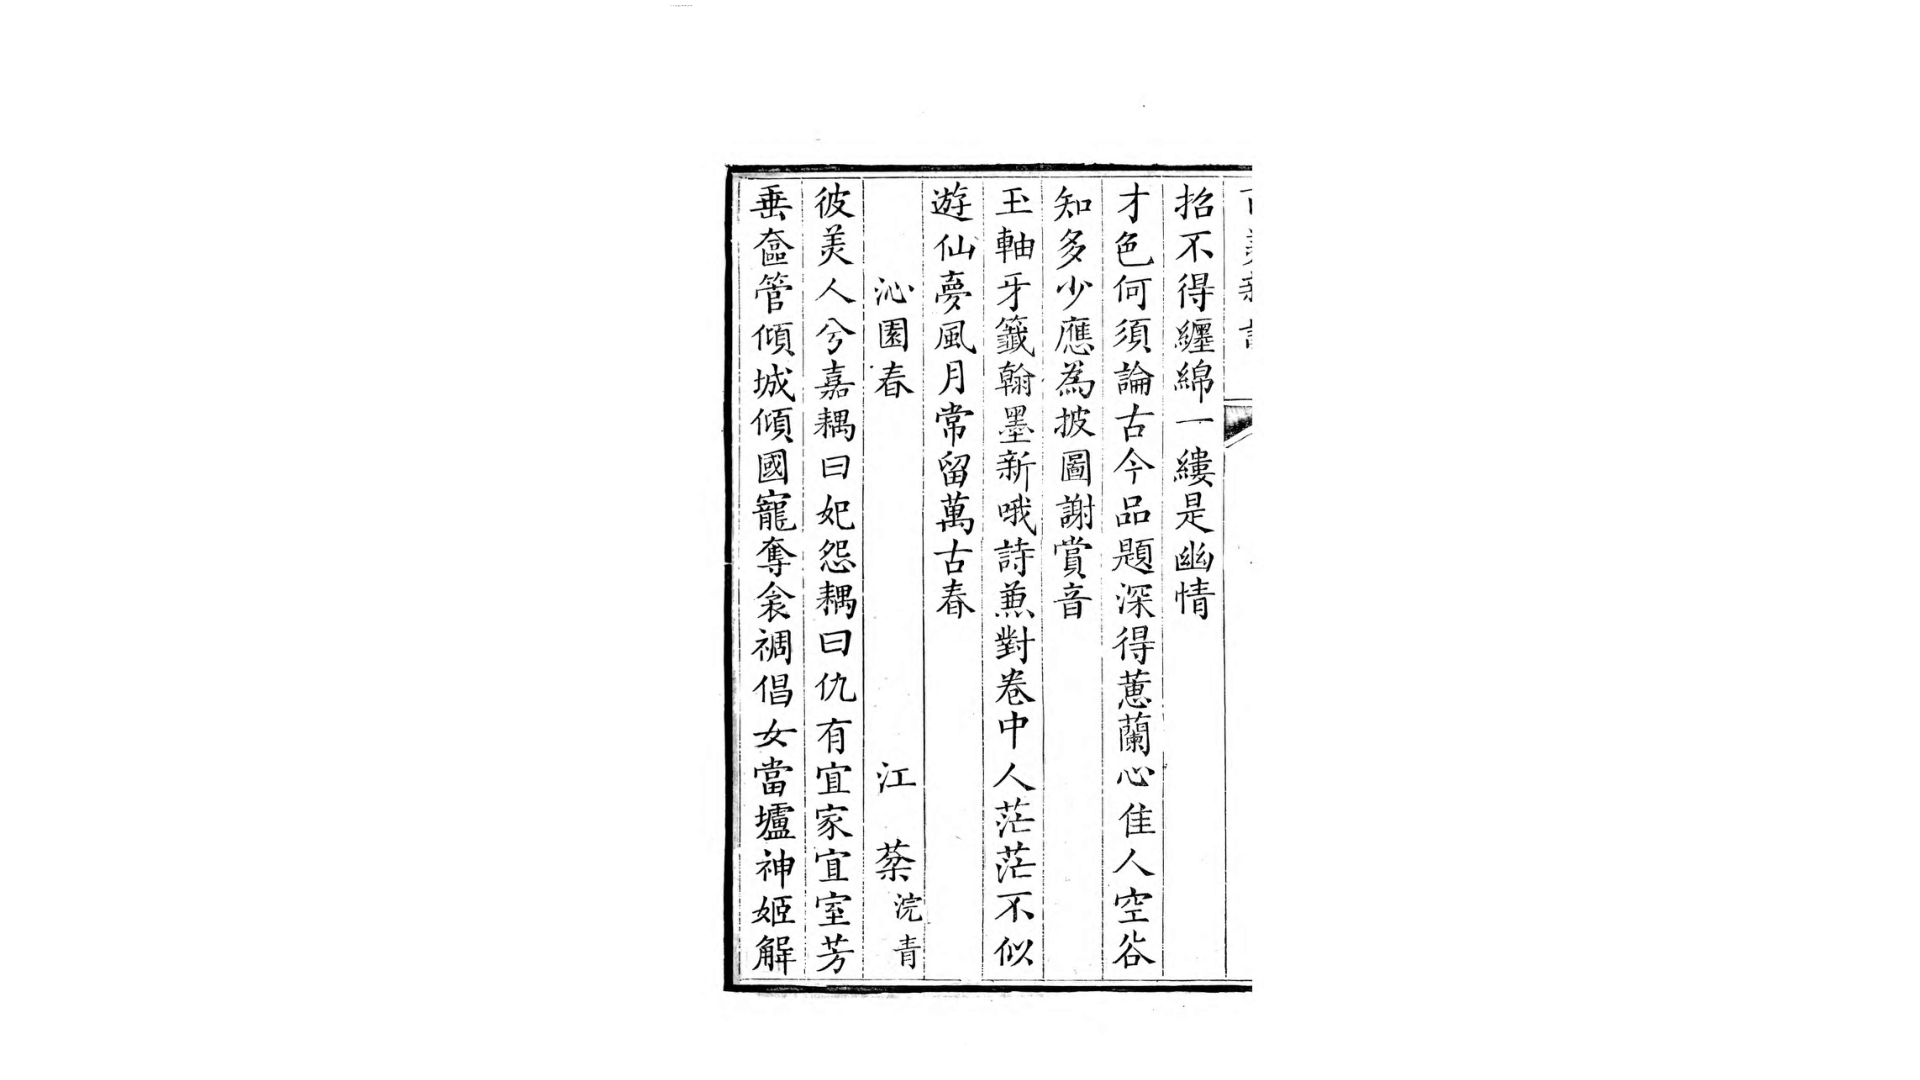 招不得纏綿一縷是幽情
才色何須論古今品題深得蕙蘭心佳人空谷
知多少應為披圖謝賞音
玉軸牙籤翰墨新哦詩兼對卷中人茫茫不似
遊仙夢風月常留萬古春
沁園春 江 蘂浣青
彼美人兮嘉耦曰妃怨耦曰仇有宜家宜室芳
垂奩管傾城傾國寵奪衾裯倡女當壚神姬解